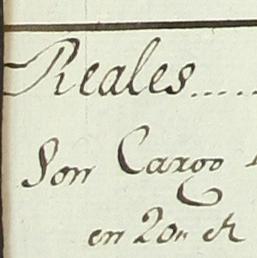 Reales.....
Son Cargo
en 20„ de